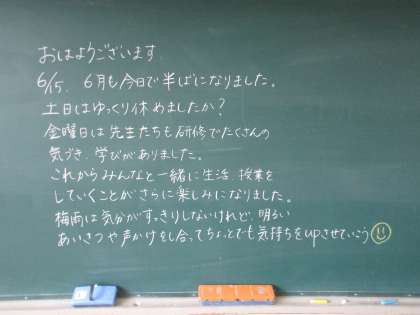 おはようございます。
6/15. 6月も今日で半ばになりました。
土日はゆっくり休めましたか？
金曜日は先生たちも研修でたくさんの
気づき、学びがありました。
これからみんなと一緒に生活、授業を
していくことがさらに楽しみになりました。
梅雨は気分がすっきりしないけれど、明るい
あいさつや声かけをし合ってちょっとでも気持ちをupさせていこう